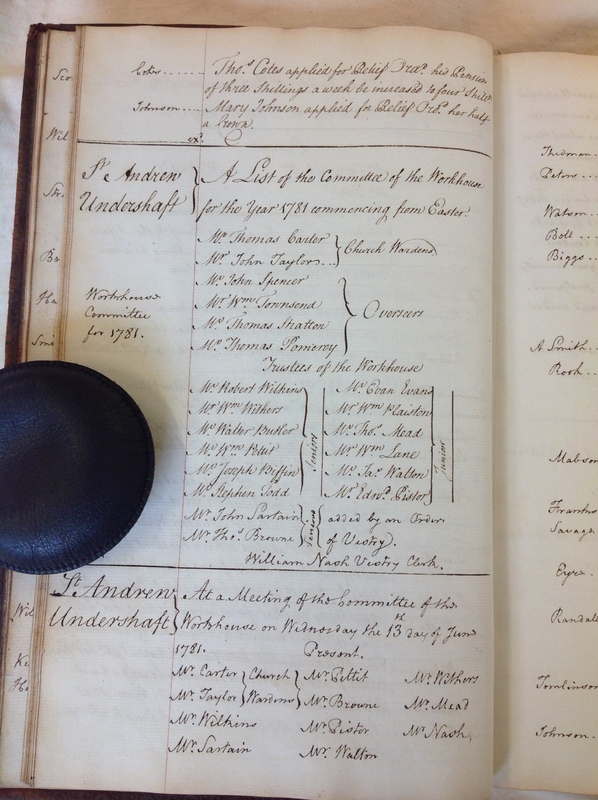 Cotes ...... Thos. Cotes applied for Relief Ord. his Pension
of three Shillings a week be increased to four Shill
Johnson ... Mary Johnson applied for Relief Ord. her half
a Crown.
ex.
St. Andrew
Undershaft
A List of the Committee of the Workhouse
for the Year 1781 commencing from Easter.
Mr. Thomas Carter
Mr. John Taylor ...
Church Wardens
Workhouse
Committee
for 1781.
Mr. John Spencer
Mr. Wm. Townsend
Mr. Thomas Stratton
Mr. Thomas Pomeroy
Overseers
Trustees of the Workhouse
Mr. Robert Wilkins
Mr. Wm. Withers
Mr. Walter Butler
Mr. Wm. Pettit
Mr. Joseph Biffin
Mr. Stephen Todd
Seniors
Mr. Evan Evans
Mr. Wm. Plaiston
Mr. Thos. Mead
Mr. Wm. Lane
Mr. Jas. Walton
Mr. Edwd. Pistor
Junior
Mr. John Sartain
Mr. Thos. Browne
Juniors
added by an Order
of Vestry.
William Nash Vestry Clerk.
St. Andrew
Undershaft
At a Meeting of the Committee of the
Workhouse on Wednesday the 13th day of June
1781. Present.
Mr. Carter
Mr. Taylor
Church
Wardens
Mr. Wilkins
Mr. Sartain
Mr. Pettit
Mr. Browne
Mr. Pistor
Mr. Walton
Mr. Withers
Mr. Mead
Mr. Nash,
Peters ...
Watson ...
Bolt ...
Biggs ...
A Smith ...
Rook ...
Mabson
Savage
Eyre.
Randal
Tomlinson
Johnson.